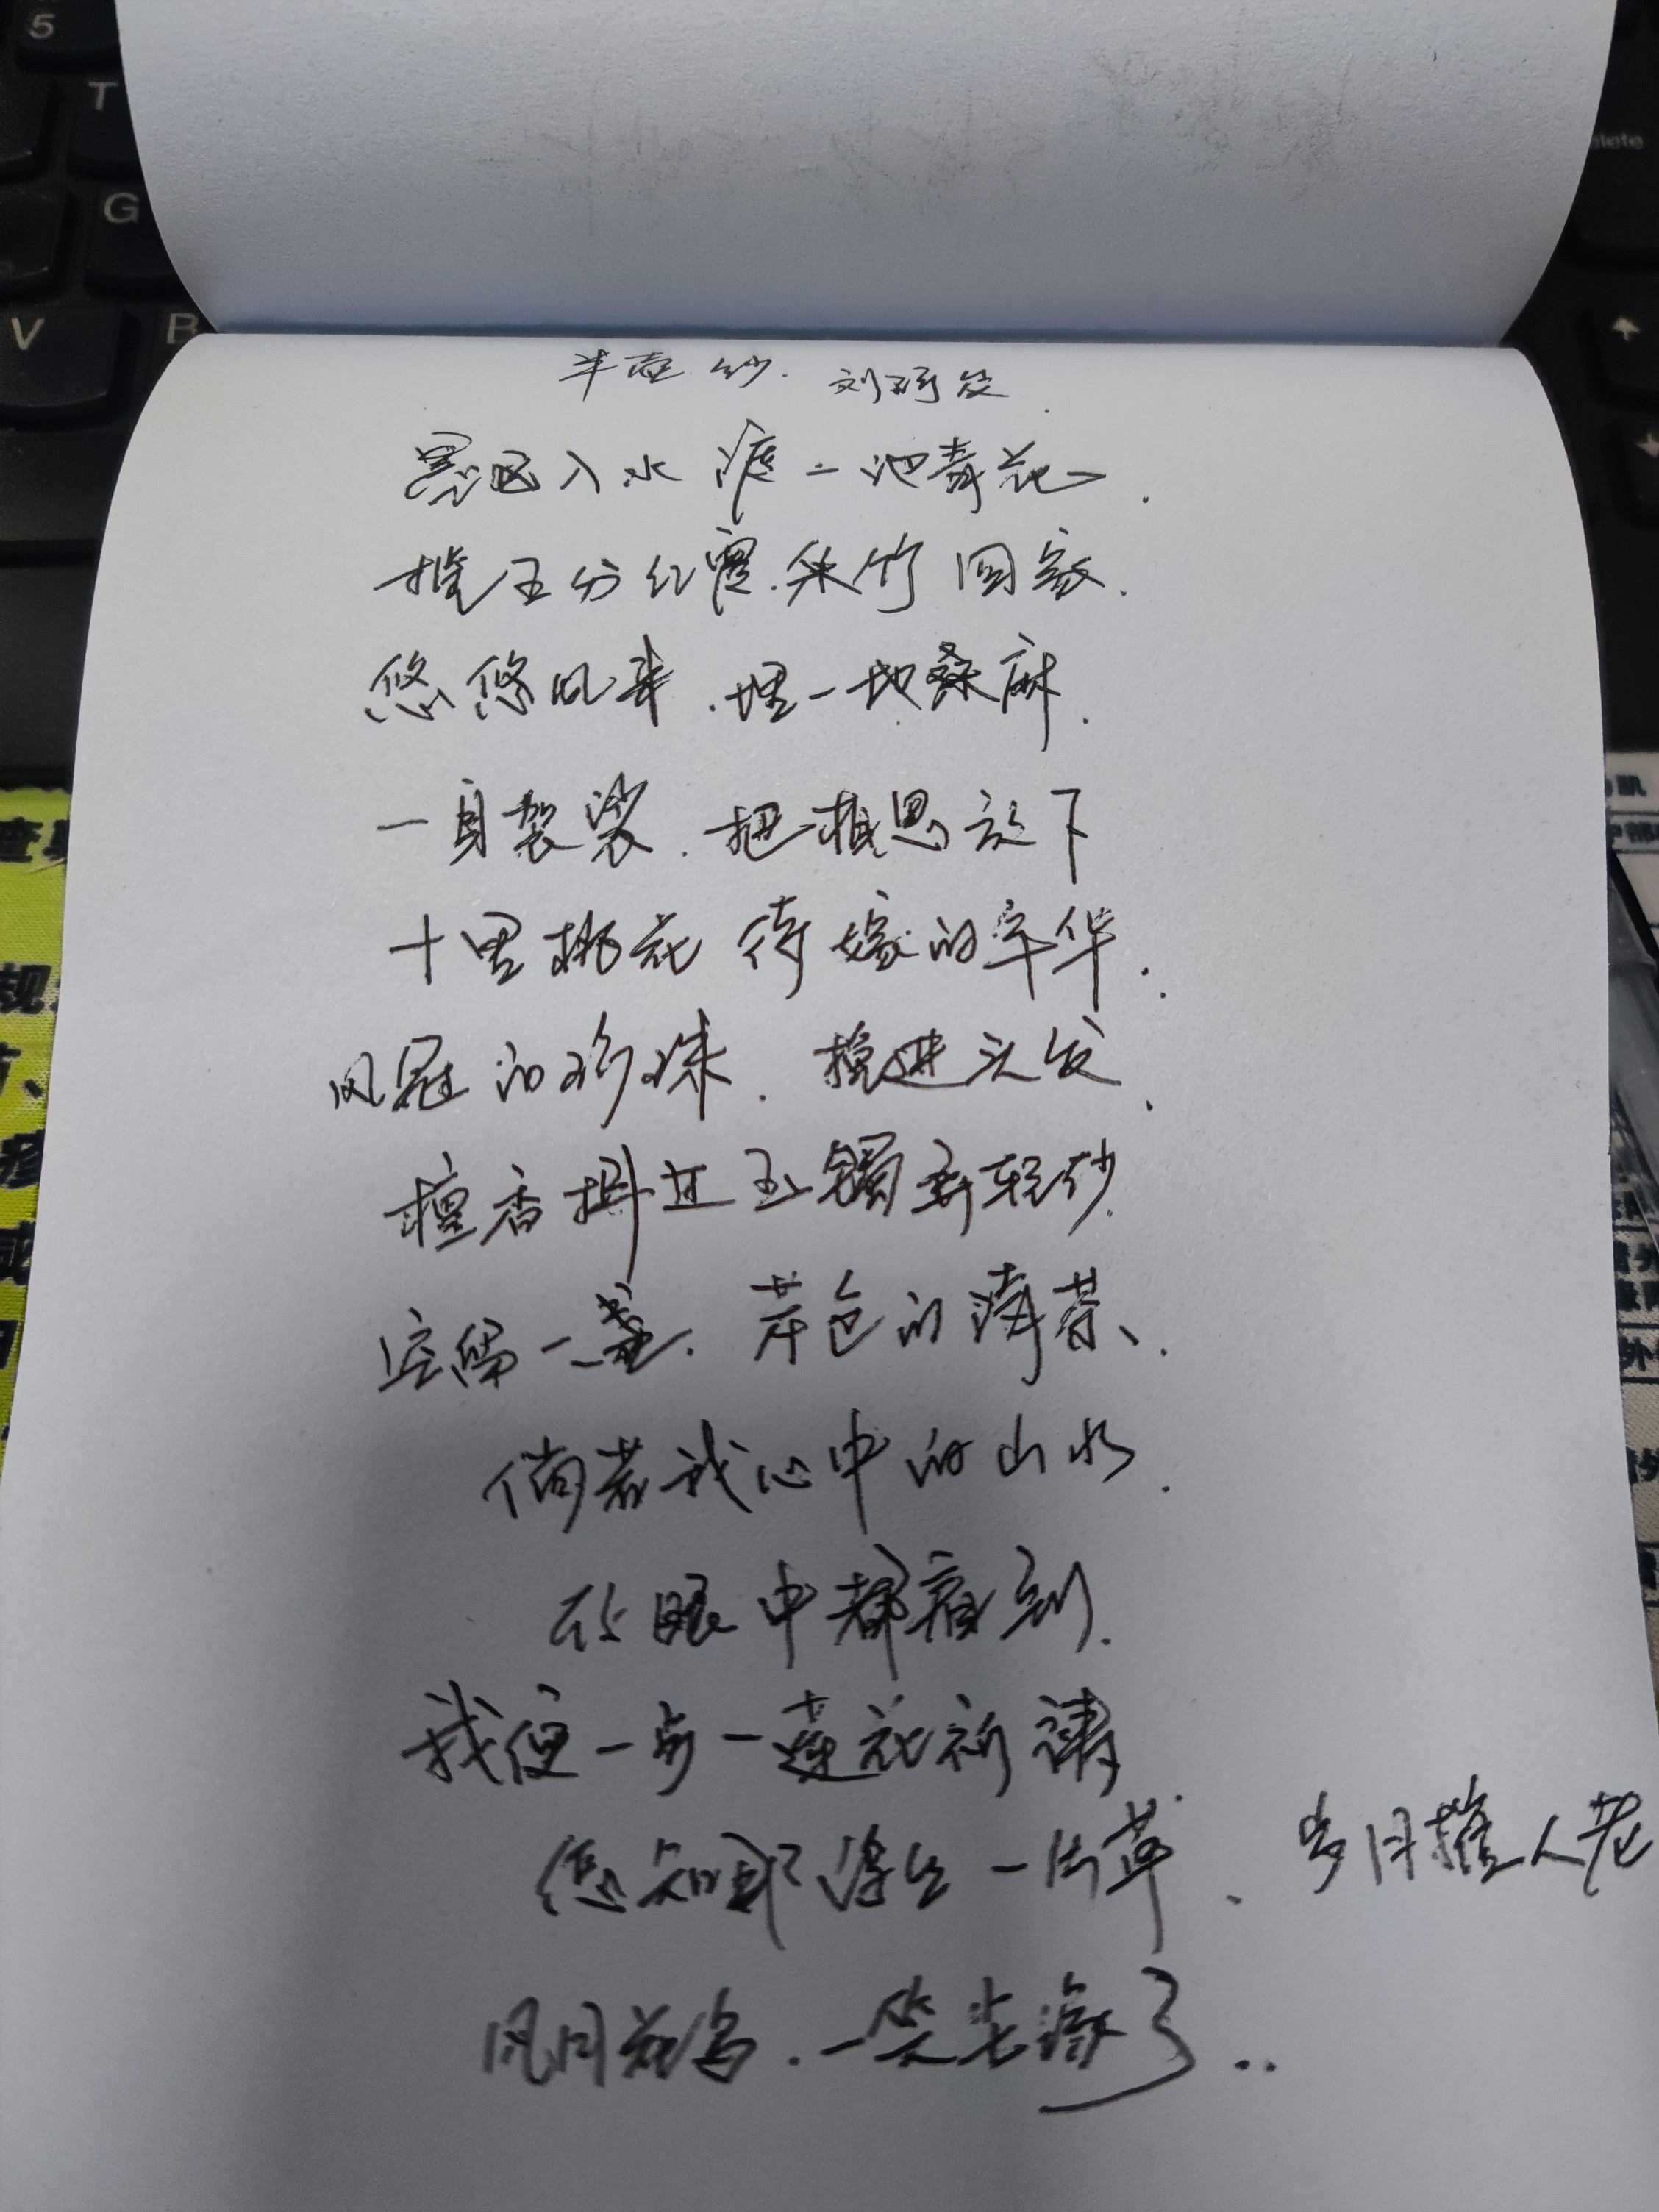 半壶纱. 刘珂矣.
墨已入水 渡一池青花.
揽五分红霞.采竹回家.
悠悠风来.埋一地桑麻.
一身袈裟.把相思放下
十里桃花 待嫁的年华.
凤冠的珍珠.挽进头发.
檀香拂过玉镯弄轻纱.
空留一盏.芽色的清茶.
倘若我心中的山水.
你眼中都看到.
我便一步一莲花祈祷.
怎知那浮生一片草、岁月催人老
风月花鸟.一笑尘缘了..
5
T
G
V
B